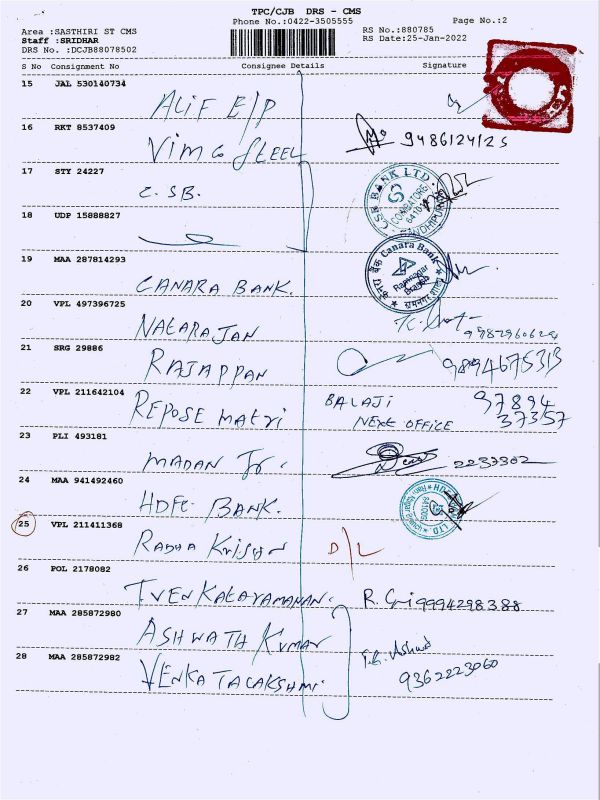 TPC/CJB DRS - CMS
Phone No.:0422-3505555 Page No.:2
Area :SASTHIRI ST CMS RS No.:880785
Staff :SRIDHAR RS Date:25-Jan-2022
DRS No. :DCJB88078502
S No Consignment No Consignee Details Signature
15 JAL 530140734
ALIF E/P
16 RKT 8537409
VIMG STEEL 9486124125
17 STY 24227
C.SB. CSB BANK LTD. COIMBATORE GANDHIPURAM
18 UDP 15888827
19 MAA 287814293
CANARA BANK. Canara Bank Ramnagar Branch
20 VPL 497396725
NATARAJAN
21 SRG 29886
RAJAPPAN 9894675313
22 VPL 211642104
REPOSE MATRI BALAJI NEXT OFFICE 97894 37357
23 PLI 493181
MADAN Jr. 2233302
24 MAA 941492460
HDFC BANK.
25 VPL 211411368
RADHA KRISHN D/L
26 POL 2178082
T VENKATARAMANAN. 9994298388
27 MAA 285872980
ASHWATH KUMAR
28 MAA 285872982
VENKATALAKSHMI 9362223060